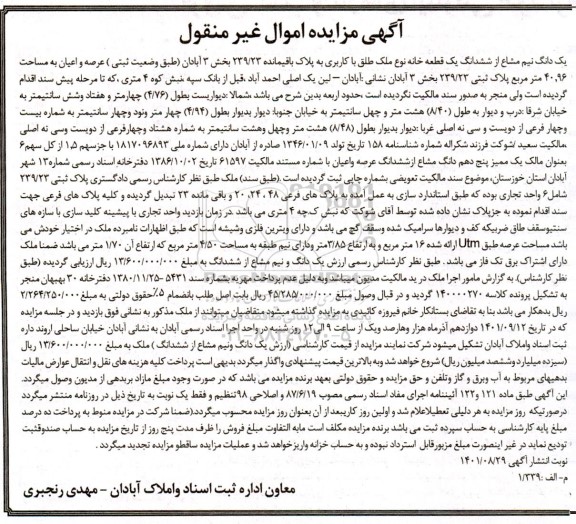 آگهی مزایده اموال غیر منقول
یک دانگ نیم مشاع از ششدانگ یک قطعه خانه نوع ملک طلق با کاربری به پلاک باقیمانده ۲۳۹/۲۳ بخش ۳ آبادان (طبق وضعیت ثبتی ) عرصه و اعیان به مساحت
۴۰,۹۶ متر مربع پلاک ثبتی ۲۳۹/۲۳ بخش ۳ آبادان نشانی :آبادان – لین یک اصلی احمد آباد ،قبل از بانک سپه نبش کوه ۴ متری ،که تا مرحله پیش سند اقدام
گردیده است ولی منجر به صدور سند مالکیت نگردیده است ،حدود اربعه بدین شرح می باشد :شمالا :دیواریست بطول (۴/۷۶) چهارمتر و هفتاد وشش سانتیمتر به
خیابان شرقا :درب و دیوار به طول (۸/۴۰) هشت متر و چهل سانتیمتر به خیابان جنوبا: دیوار بدیوار بطول (۴/۹۴) چهار متر ونود وچهار سانتیمتر به شماره بیست
وچهار فرعی از دویست و سی نه اصلی غربا :دیوار بدیوار بطول (۸/۴۸) هشت متر وچهل وهشت سانتیمتر به شماره هشتاد وچهارفرعی از دویست وسی نه اصلی
،مالکیت سعید /شوکت فرزند شکراله شماره شناسنامه ۱۵۸ تاریخ تولد ۱۳۴۶/۰۱/۰۹ صادره از آبادان دارای شماره ملی ۱۸۱۷۰۹۶۸۹۳ با جزسهم ۱٫۵ از کل سهم۶
بعنوان مالک یک ممیز پنج دهم دانگ مشاع ازششدانگ عرصه واعیان با شماره مستند مالکیت ۶۱۵۹۷ تاریخ ۱۳۸۶/۱۰/۰۲ دفترخانه اسناد رسمی شماره۱۳ شهر
آبادان استان خوزستان، موضوع سند مالکیت تعویضی بشماره چاپی ثبت گردیده است .(طبق سند) ملک طبق نظر کارشناس رسمی دادگستری پلاک ثبتی ۲۳۹/۲۳
شامل۶ واحد تجاری بوده که طبق استاندارد سازی به عمل آمده به پلاک های فرعی ۲۰،۲۴،۴۸ و باقی مانده ۲۳ تبدیل گردیده و کلیه پلاک های فرعی جهت
سند اقدام نموده به جزپلاک نشان داده شده توسط آقای شوکت که نبش ک چه ۴ متری می باشد .در زمان بازدید واحد تجاری با پیشینه کلید سازی با سازه های
سنتیوسقف طاق ضربیکه کف و دیوارها سرامیک شده وسقف گچ می باشد و دارای ویترین فلزی وشیشه است که طبق اظهارات نامبرده ملک در اختیار خودش می
باشد مساحت عرصه طبق Utm ارائه شده ۱۶ متر مربع و به ارتفاع ۳/۸۵متر ودارای نیم طبقه به مساحت ۴/۵۰ متر مربع که ارتفاع آن ۱/۷۰ متر می باشد ضمنا ملک
دارای اشتراک برق تک فاز می باشد . طبق نظر کارشناس رسمی ارزش یک دانگ و نیم مشاع از ششدانگ به مبلغ ۱۳/۶۰۰/۰۰۰/۰۰۰ ریال ارزیابی گردیده (طبق
نظر کارشناس). به گزارش مامور اجرا ملک در ید مالکیت مدیون میباشد وبه دلیل عدم پرداخت مهر به شماره سند ۵۴۳۱ -۱۳۸۰/۱۱/۲۵ دفترخانه ۳۰ بهبهان منجر
به تشکیل پرونده کلاسه ۱۴۰۰۰۰۲۷۰ گردید و در قبال وصول مبلغ ۴۵/۲۸۵/۰۰۰/۰۰۰ ریال بابت اصل طلب بانضمام ۵٪حقوق دولتی به مبلغ ۲/۲۶۴/۲۵۰/۰۰۰
ریال بدهکار می باشد بنا به تقاضای بستانکار خانم فیروزه کائیدی به مزایده گذاشته میشود ،متقاضیان میتوانند از ملک مذکور به نشانی فوق بازدید و در جلسه مزایده
که در تاریخ ۱۴۰۱/۰۹/۱۲ دوازدهم آذرماه هزار وهارصد ویک از ساعت ۹ الی ۱۲ روزشنبه در واحد اجرا اسناد رسمی آبادان به نشانی آبادان خیابان ساحلی اروند داره
ثبت اسناد واملاک آبادان تشکیل میشود شرکت نمایند مزایده از قیمت کارشناسی (ارزش یک دانگ ونیم مشاع از ششدانگ ) ملک به مبلغ ۱۳/۶۰۰/۰۰۰/۰۰۰ ریال
(سیزده میلیارد وششصد میلیون ریال) شروع خواهد شد وبه بالاترین قیمت پیشنهادی واگذار میگردد بدیهی است پرداخت کلیه هزینه های نقل و انتقال عوارض مالیات
بدهیهای مربوط به آب وبرق و گاز وتلفن و حق مزایده و حقوق دولتی بعهد برنده مزایده می باشد که در صورت وجود مبلغ مازاد بربدهی از مدیون وصول میگردد.
این آگهی طبق ماده ۱۲۱ و۱۲۲ آئیننامه اجرای مفاد اسناد رسمی مصوب ۸۷/۶/۱۹ و اصلاحی ۹۸تنظیم و فقط یک نوبت به تاریخ ذیل در روزنامه منتشر میگردد
درصورتیکه روز مزایده به هر دلیلی تعطیلاعلام شد و اولین روز کاریبعد از آن بعنوان روز مزایده محسوب میگردد.(ضمنا شرکت در مزایده منوط به پرداخت ده درصد
مبلغ پایه کارشناسی به حساب سپرده ثبت می باشد برنده مزایده مکلف است مابه التفاوت مبلغ فروش را ظرف مدت پنج روز از تاریخ مزایده به حساب صندوقثبت
تودیع نماید در غیر اینصورت مبلغ مزبورقابل استرداد نبوده و به حساب خزانه واریزخواهد شد و عملیات مزایده ساقطو مزایده تجدید میگردد .
نوبت انتشار آگهی ۱۴۰۱/۰۸/۲۹
م- الف :۱/۳۳۹
معاون اداره ثبت اسناد واملاک آبادان – مهدی رنجبری